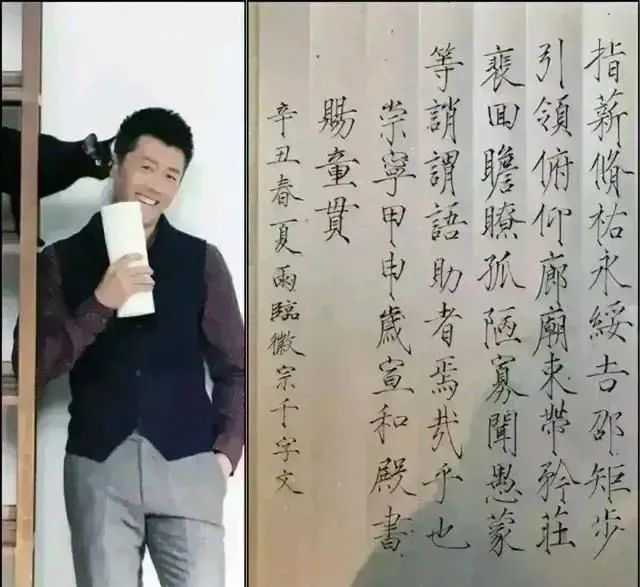 指薪脩祐永綏吉邵矩步
引領俯仰廊廟束帶矜莊
裵回瞻瞭孤陋寡聞愚蒙
等誚謂語助者焉哉乎也
崇寧甲申歲宣和殿書
賜童貫
辛丑春夏雨臨徽宗千字文